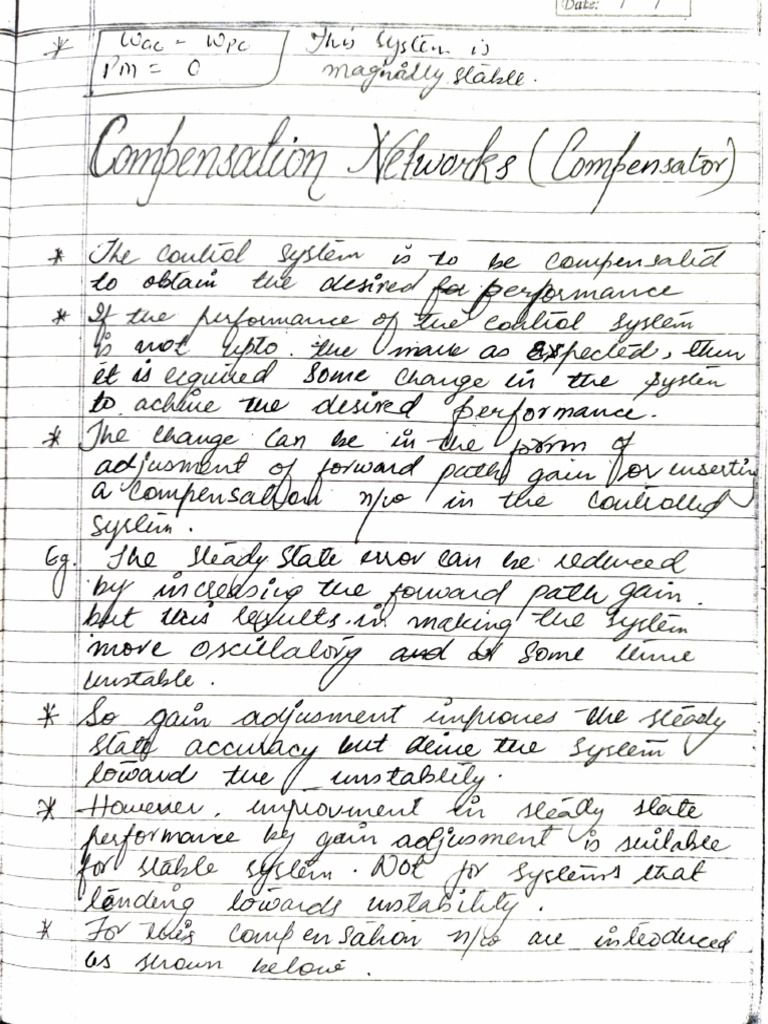 Date: / /
* Wgc = Wpc This system is
PM = 0 magnally stable.
Compensation Networks (Compensator)
* The control system is to be compensated
to obtain the desired performance
* If the performance of the control system
is not upto the mark as expected, then
it is required some change in the system
to achive the desired performance.
* The change can be in the form of
adjusment of forward path gain or insertin
a compensation n/w in the controlled
system.
Eg. The steady state error can be reduced
by increasing the forward path gain.
but this results in making the system
more oscillatory and or some time
unstable.
* So gain adjusment improves the steady
state accuracy but drive the system
toward the unstablity.
* However, improvment in steady state
performance by gain adjusment is suitable
for stable system. Not for systems that
tending towards unstability.
* For this compensation n/w are introduced
as shown below.